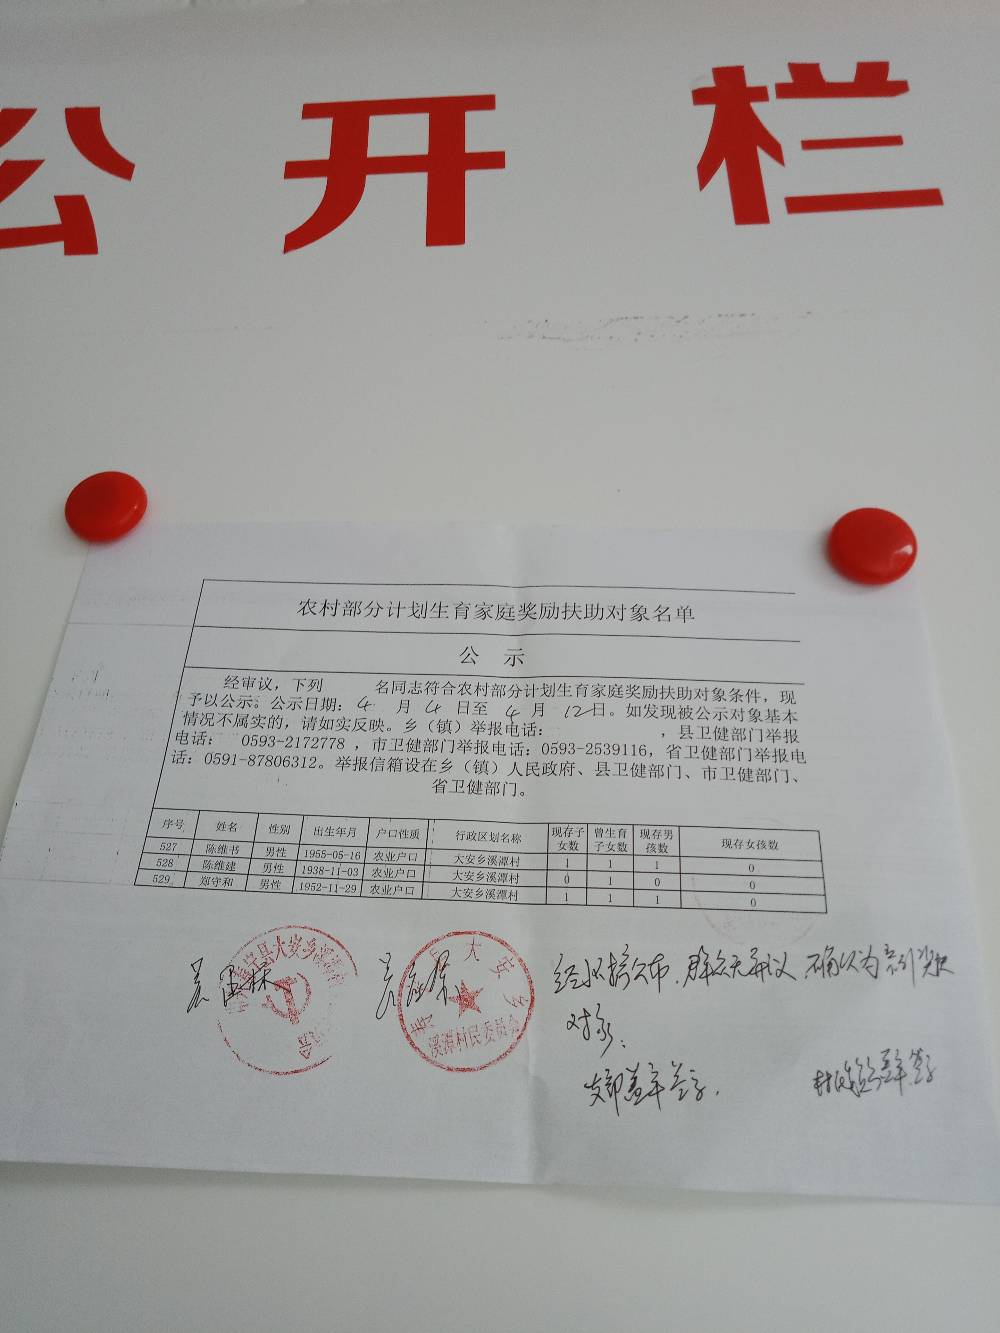 公开栏
农村部分计划生育家庭奖励扶助对象名单
公 示
经审议，下列 名同志符合农村部分计划生育家庭奖励扶助对象条件，现
予以公示。公示日期：4 月 4 日至 4 月 12日。如发现被公示对象基本
情况不属实的，请如实反映。乡（镇）举报电话： ，县卫健部门举报
电话： 0593-2172778 ，市卫健部门举报电话：0593-2539116，省卫健部门举报电
话：0591-87806312。举报信箱设在乡（镇）人民政府、县卫健部门、市卫健部门、
省卫健部门。
序号 姓名 性别 出生年月 户口性质 行政区划名称 现存子女数 曾生育子女数 现存男孩数 现存女孩数
527 陈维书 男性 1955-05-16 农业户口 大安乡溪潭村 1 1 1 0
528 陈维建 男性 1938-11-03 农业户口 大安乡溪潭村 0 1 0 0
529 郑守和 男性 1952-11-29 农业户口 大安乡溪潭村 1 1 1 0
宁县大安乡溪潭
大安乡
溪潭村民委员会
群众无异议 确认为
对象
支部盖章签字
盖章签字